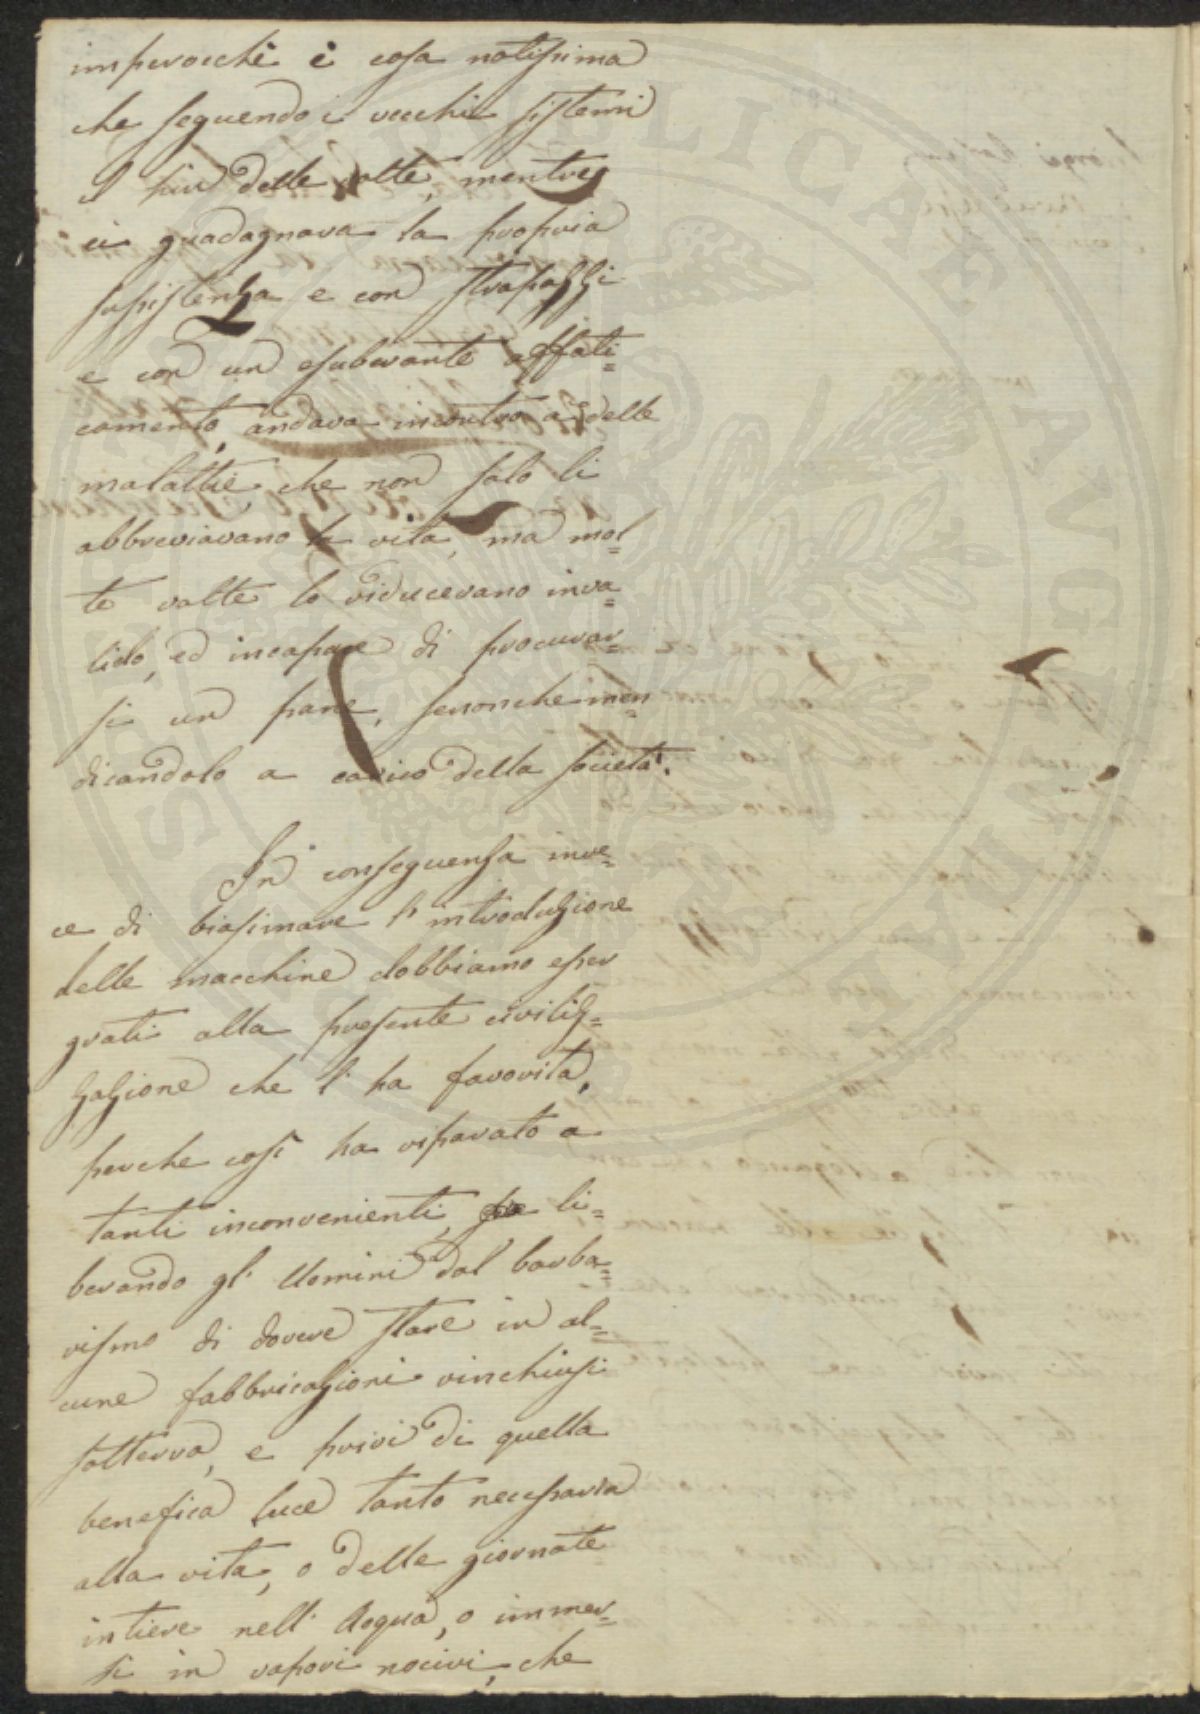 imperocchè è cosa notissima
che seguendo i vecchi sistemi
il più delle volte, mentre
si guadagnava la propria
susistenza e con strapazzi
e con un esuberante affati=
camento, andava incontro a delle
malattie che non solo li
abbreviavano la vita, ma mol=
te volte lo riducevano inva=
lido, ed incapace di procurar=
si un pane, senonche men=
dicandolo a carico della società.
In conseguenza inve=
ce di biasimare l'introduzione
delle macchine dobbiamo esser
grati alla presente civiliz=
zazione che l'ha favorita,
perche così ha riparato a
tanti inconvenienti, li=
berando gl'Uomini dal barba=
rismo di dovere stare in al=
cune fabbricazioni rinchiusi
sotterra, e privi di quella
benefica luce tanto necessaria
alla vita, o delle giornate
intiere nell'Acqua, o immer=
si in vapori nocivi, che